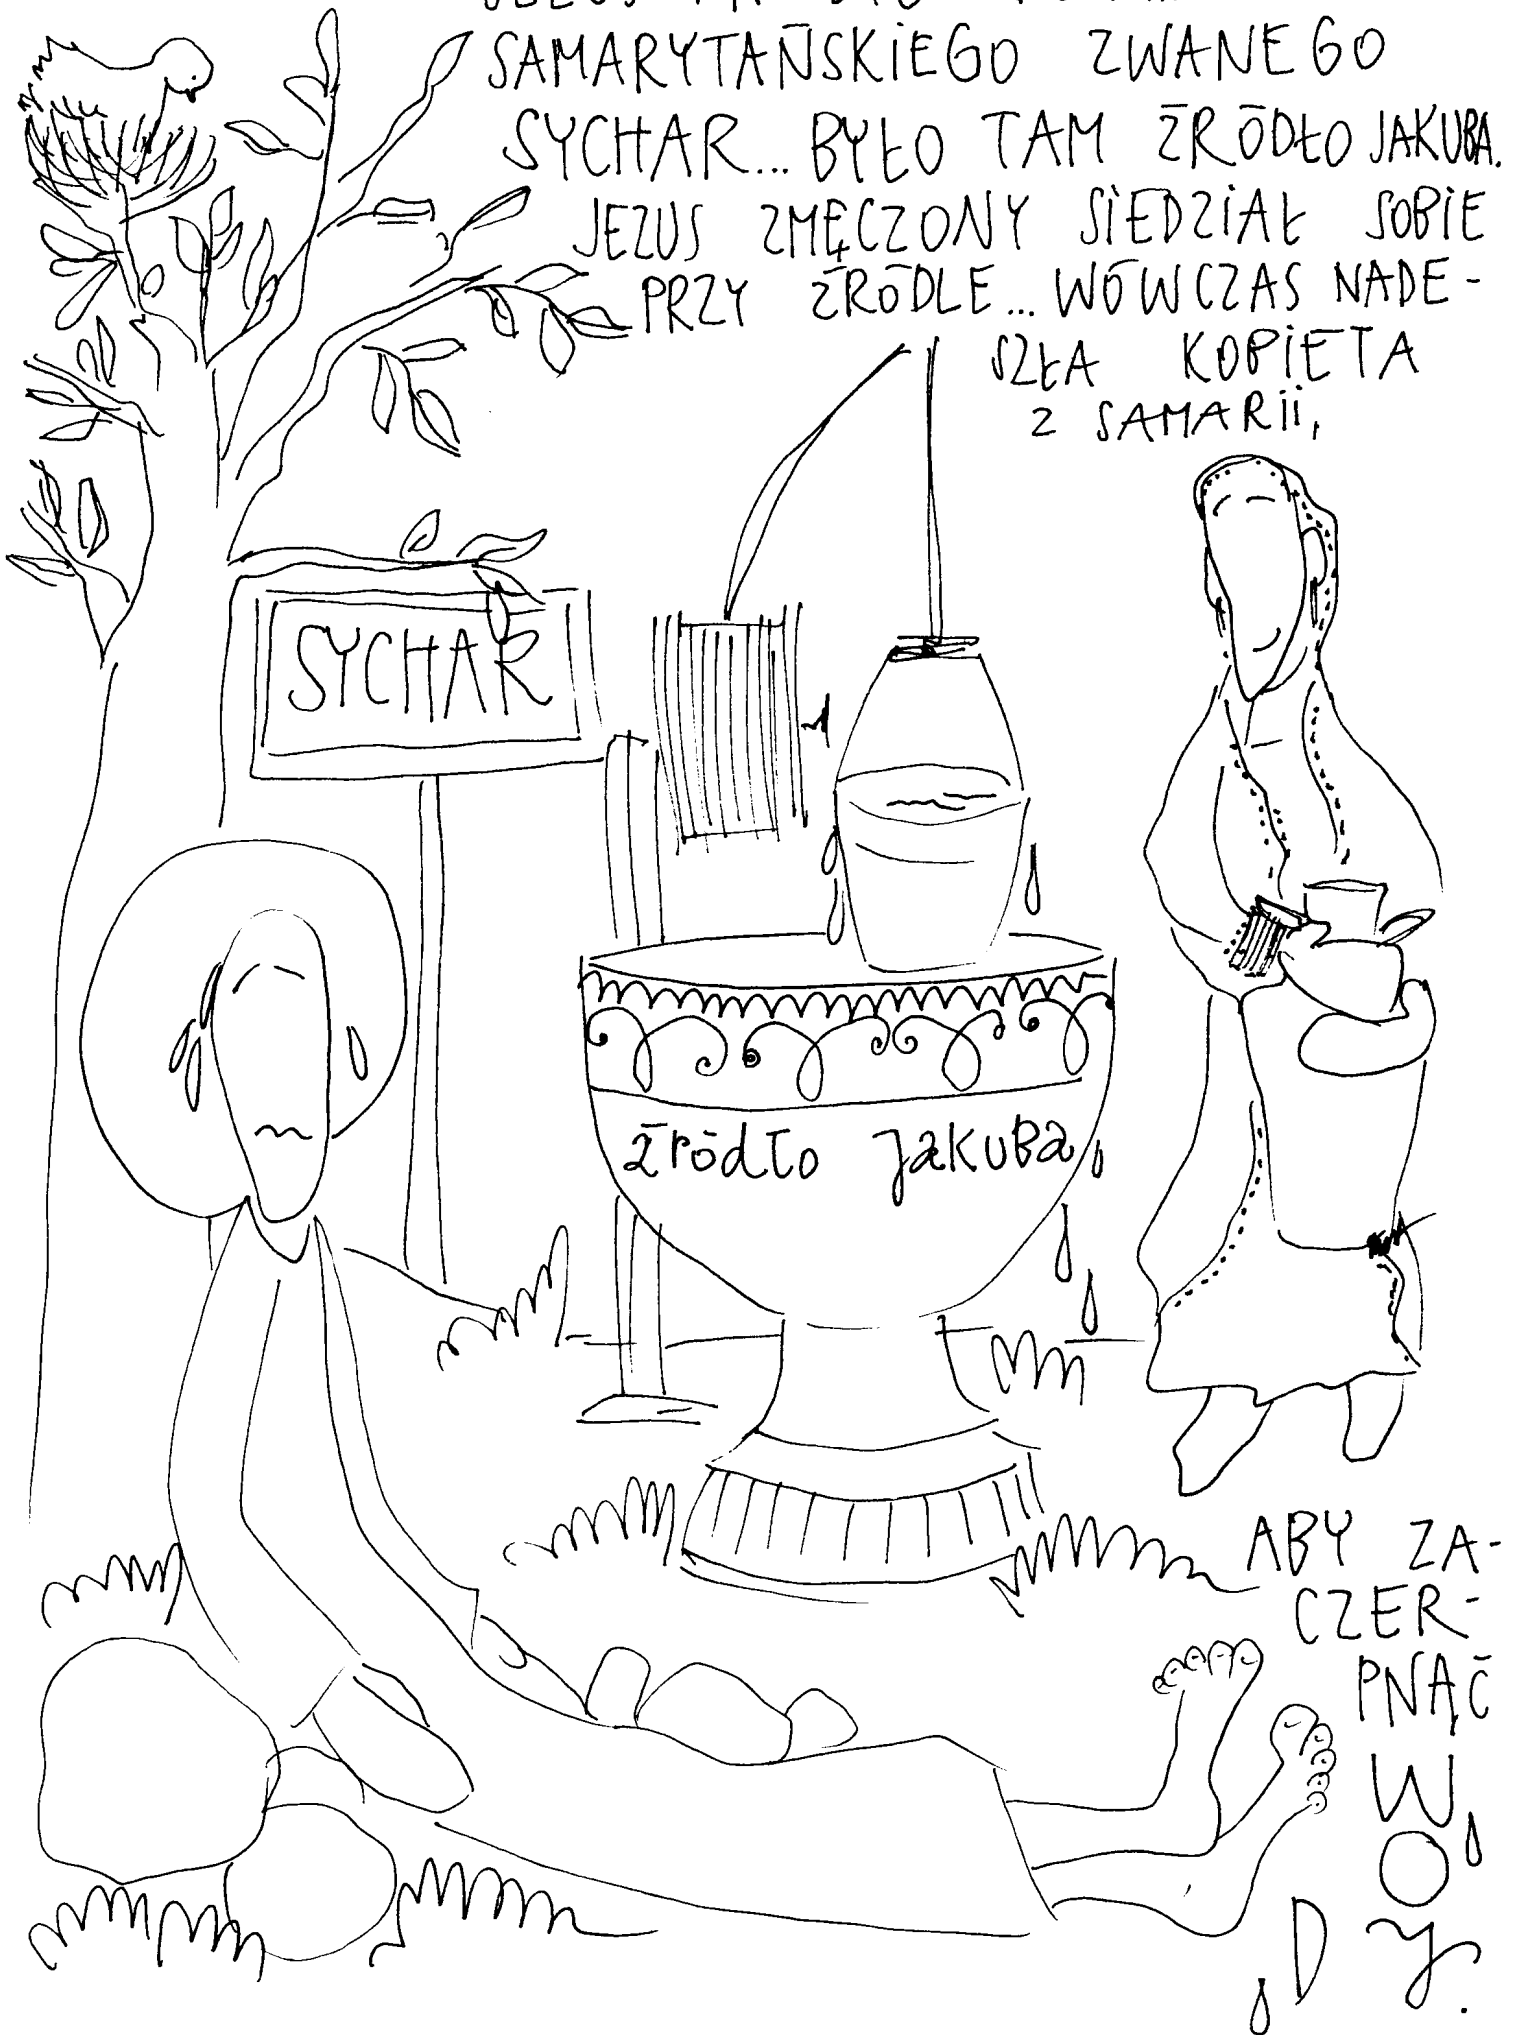 SAMARYTAŃSKIEGO ZWANEGO
SYCHAR... BYŁO TAM ŹRÓDŁO JAKUBA.
JEZUS ZMĘCZONY SIEDZIAŁ SOBIE
PRZY ŹRÓDLE... WÓWCZAS NADE-
SZŁA KOBIETA
Z SAMARII,
SYCHAR
źródło Jakuba
ABY ZA-
CZER-
PNĄĆ
WODY.